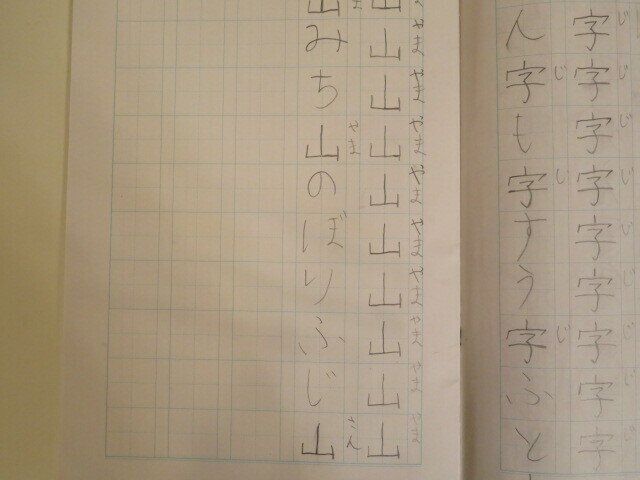 じじじじじじじじじ
字字字字字字字字字
じじじ
ん字も字すう字ふと
やまやまやまやまやまやまやまやまやま
山山山山山山山山山山
やまさん
山みち山のぼりふじ山